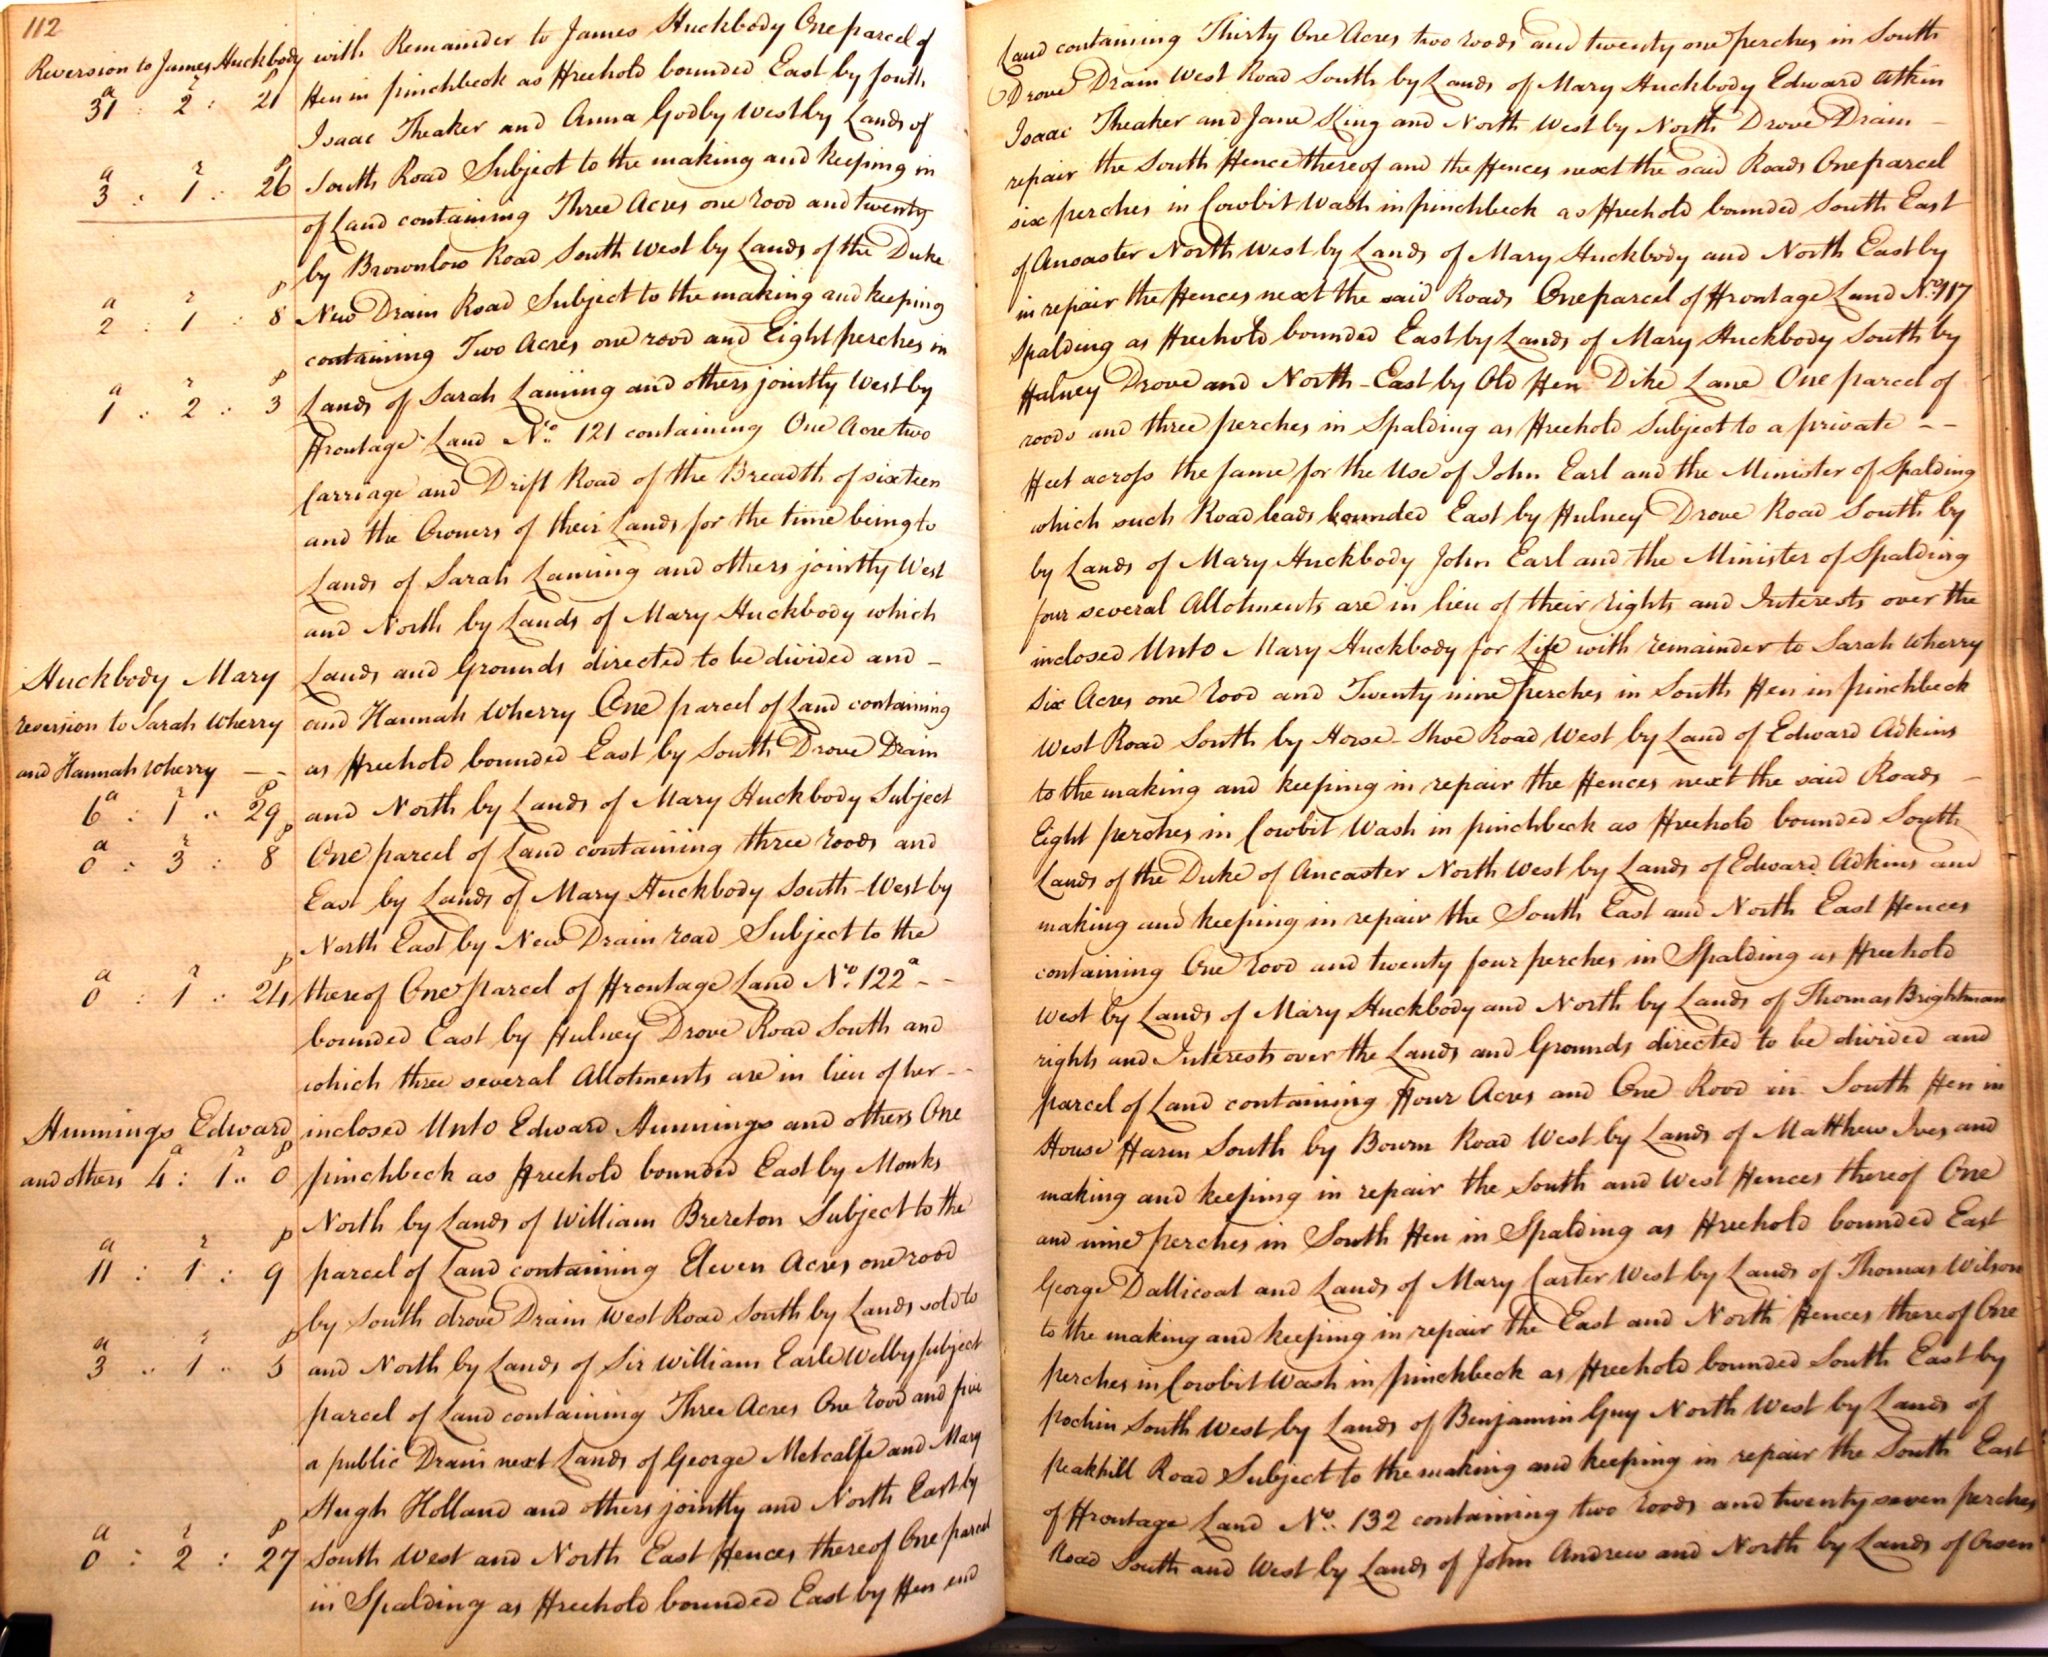 112
Reversion to James Huckbody with Remainder to James Huckbody One parcel of Land containing Thirty One Acres two roods and twenty one perches in South
a r p
31 : 2 : 21 Fen in pinchbeck as Freehold bounded East by South Drove Drain West Road South by Lands of Mary Huckbody Edward Atkin
Isaac Theaker and Anna Godby West by Lands of Isaac Theaker and Jane King and North West by North Drove Drain –
a r p
3 : 1 : 26 South Road Subject to the making and keeping in repair the South Fence thereof and the Fences next the said Roads One parcel
of Land containing Three Acres one rood and twenty six perches in Cowbit Wash in pinchbeck as Freehold bounded South East
by Brownlow Road South West by Lands of the Duke of Ancaster North West by Lands of Mary Huckbody and North East by
a r p
2 : 1 : 8 New Drain Road Subject to the making and keeping in repair the Fences next the said Roads One parcel of Frontage Land No. 117
containing Two Acres one rood and Eight perches in Spalding as Freehold bounded East by Lands of Mary Huckbody South by
a r p
1 : 2 : 3 Lands of Sarah Laming and others jointly West by Fulney Drove and North-East by Old Fen Dike Lane One parcel of
Frontage Land No. 121 containing One Acre two roods and three perches in Spalding as Freehold Subject to a private – –
Carriage and Drift Road of the Breadth of sixteen Feet across the same for the Use of John Earl and the Minister of Spalding
and the Owners of their Lands for the time being to which such Road leads bounded East by Fulney Drove Road South by
Lands of Sarah Laming and others jointly West by Lands of Mary Huckbody John Earl and the Minister of Spalding
and North by Lands of Mary Huckbody which four several Allotments are in lieu of their rights and Interests over the
Huckbody Mary Lands and Grounds directed to be divided and – inclosed Unto Mary Huckbody for Life with remainder to Sarah Wherry
reversion to Sarah Wherry and Hannah Wherry One parcel of Land containing Six Acres one rood and Twenty nine perches in South Fen in pinchbeck
and Hannah Wherry – – as Freehold bounded East by South Drove Drain West Road South by Horse-Shoe Road West by Land of Edward Adkins
a r p
6 : 1 : 29 and North by Lands of Mary Huckbody Subject to the making and keeping in repair the Fences next the said Roads –
a r p
0 : 3 : 8 One parcel of Land containing three roods and Eight perches in Cowbit Wash in pinchbeck as Freehold bounded South
East by Lands of Mary Huckbody South-West by Lands of the Duke of Ancaster North West by Lands of Edward Adkins and
North East by New Drain road Subject to the making and keeping in repair the South East and North East Fences
a r p
0 : 1 : 24 thereof One parcel of Frontage Land No. 122a – – containing One rood and twenty four perches in Spalding as Freehold
bounded East by Fulney Drove Road South and West by Lands of Mary Huckbody and North by Lands of Thomas Brightman
which three several Allotments are in lieu of her – – rights and Interests over the Lands and Grounds directed to be divided and
Hunnings Edward inclosed Unto Edward Hunnings and others One parcel of Land containing Four Acres and One Rood in South Fen in
a r p
and others 4 : 1 : 0 pinchbeck as Freehold bounded East by Monks House Farm South by Bourn Road West by Lands of Matthew Ives and
North by Lands of William Brereton Subject to the making and keeping in repair the South and West Fences thereof One
a r p
11 : 1 : 9 parcel of Land containing Eleven Acres one rood and nine perches in South Fen in Spalding as Freehold bounded East
by South drove Drain West Road South by Lands sold to George Dallicoat and Lands of Mary Carter West by Lands of Thomas Wilson
a r p
3 : 1 : 5 and North by Lands of Sir William Earle Welby subject to the making and keeping in repair the East and North Fences thereof One
parcel of Land containing Three Acres One rood and five perches in Cowbit Wash in pinchbeck as Freehold bounded South East by
a public Drain next Lands of George Metcalfe and Mary pochin South West by Lands of Benjamin Guy North West by Lands of
Hugh Holland and others jointly and North East by peakhill Road Subject to the making and keeping in repair the South East
a r p
0 : 2 : 27 South West and North East Fences thereof One parcel of Frontage Land No. 132 containing two roods and twenty seven perches
in Spalding as Freehold bounded East by Fen end Road South and West by Lands of John Andrew and North by Lands of Owen